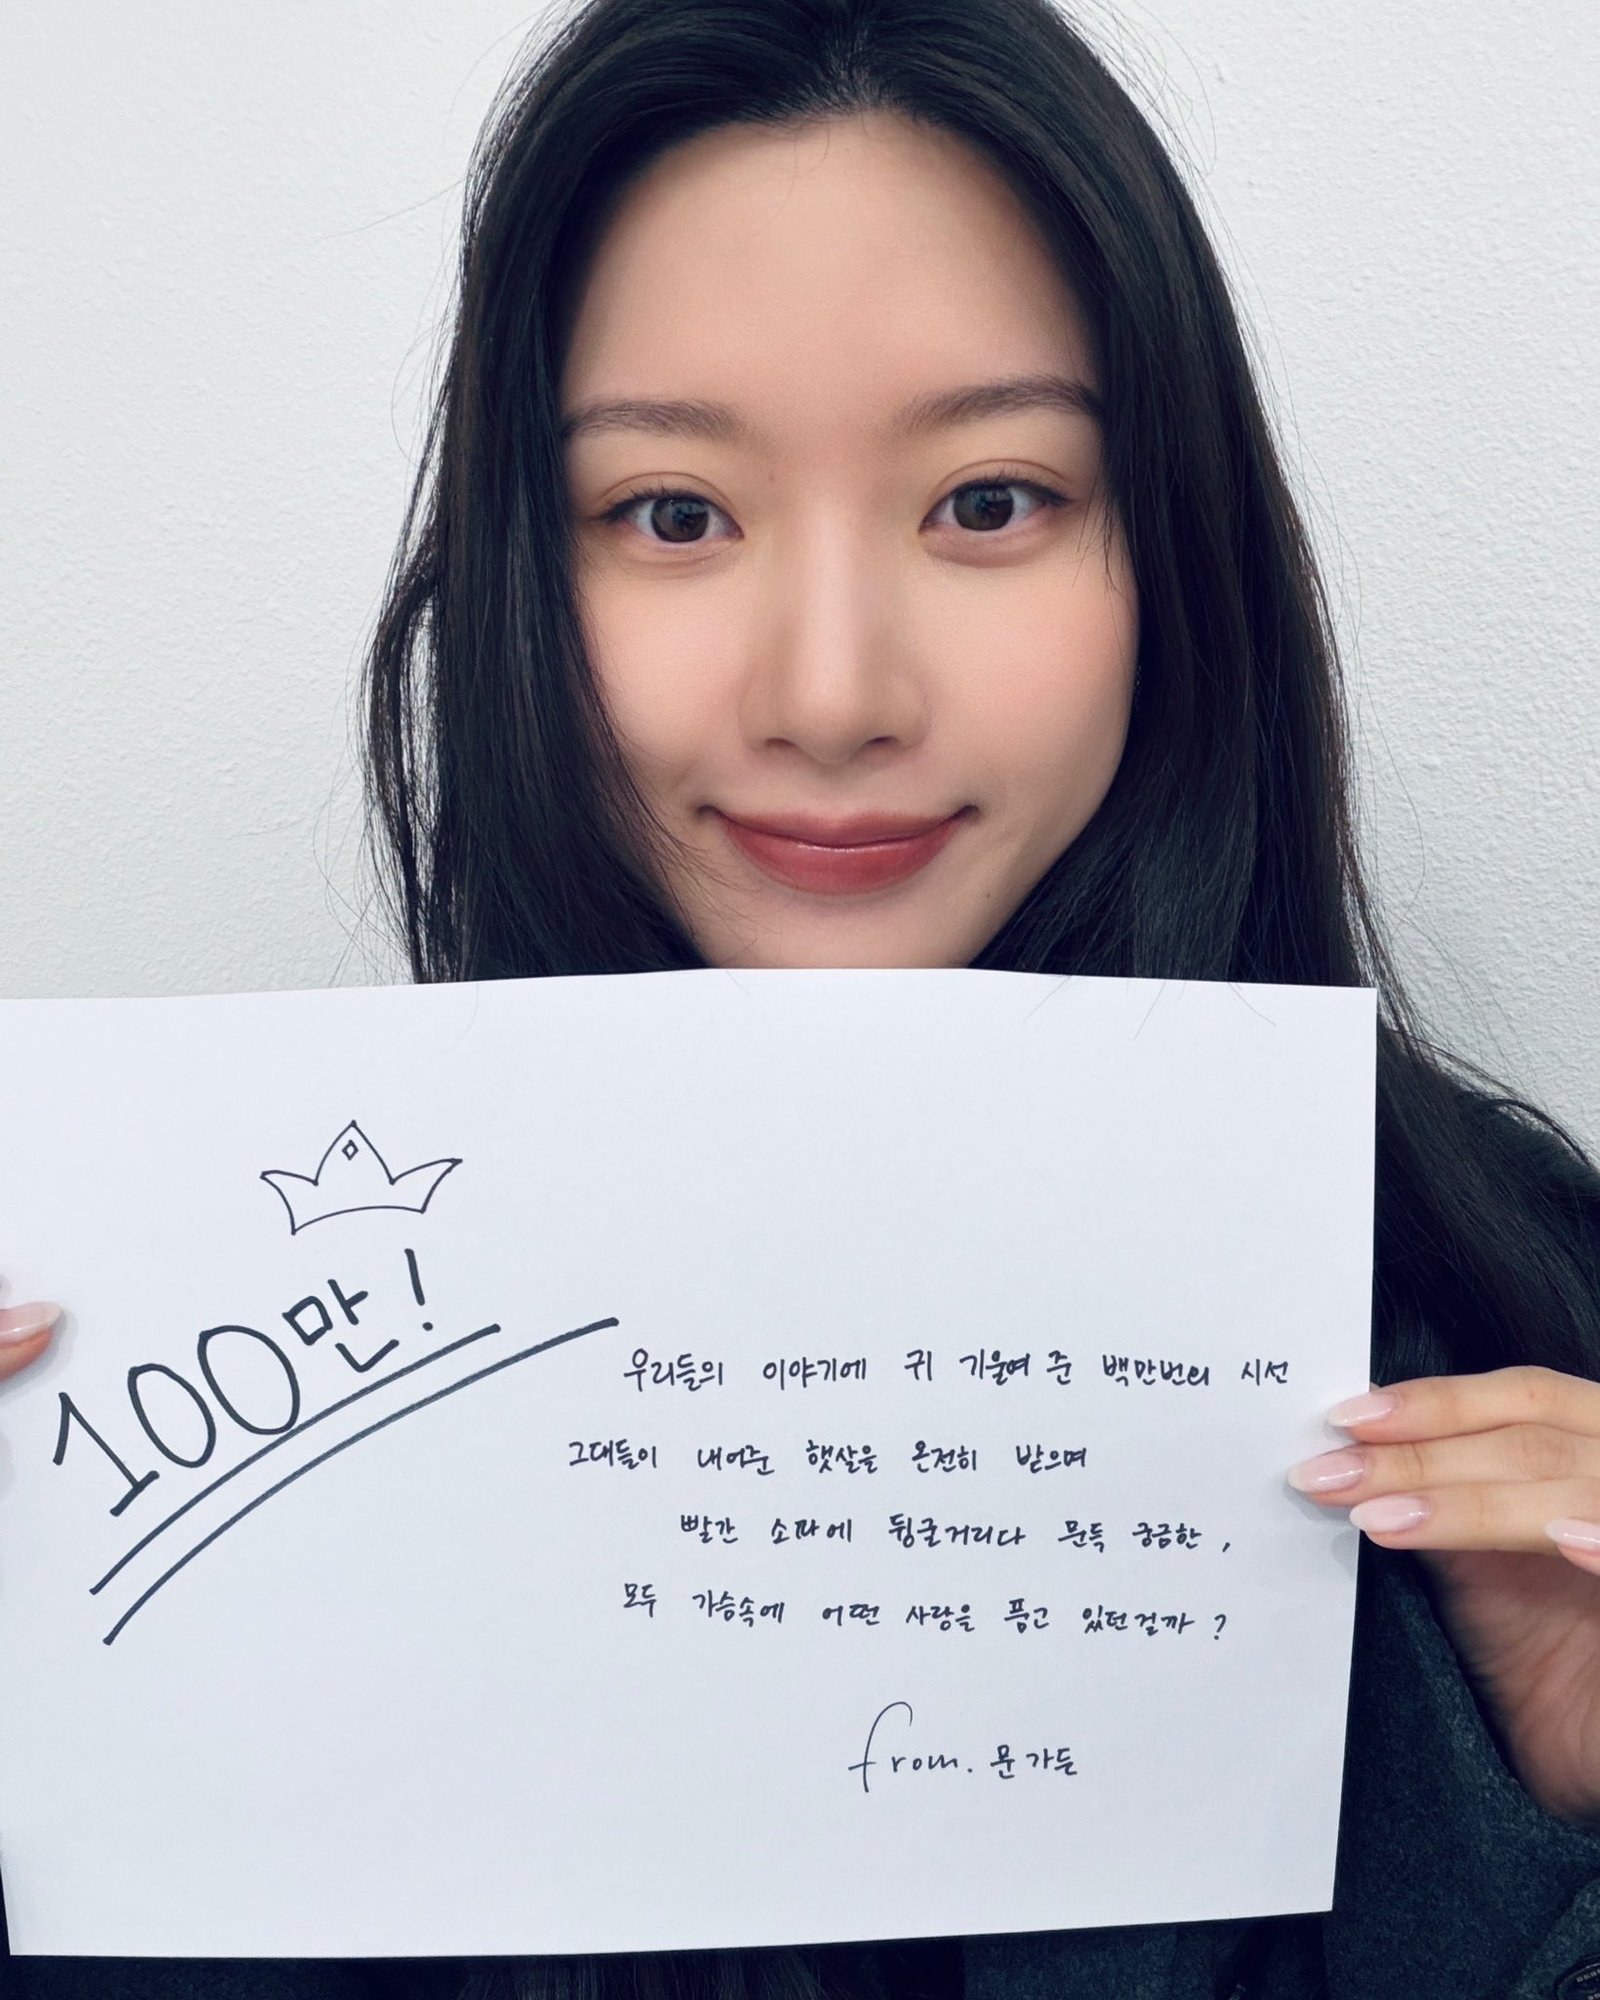 100만!
우리들의 이야기에 귀 기울여 준 백만번의 시선
그대들이 내어준 햇살을 온전히 받으며
빨간 소파에 뒹굴거리다 문득 궁금한,
모두 가슴속에 어떤 사랑을 품고 있던걸까?
from. 문가든